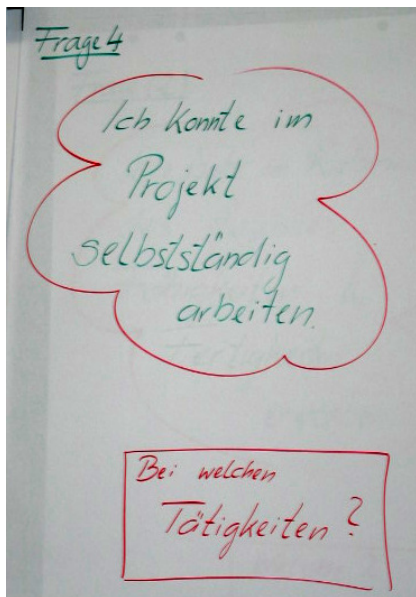 Frage 4
Ich konnte im
Projekt
selbstständig
arbeiten.
Bei welchen
Tätigkeiten?